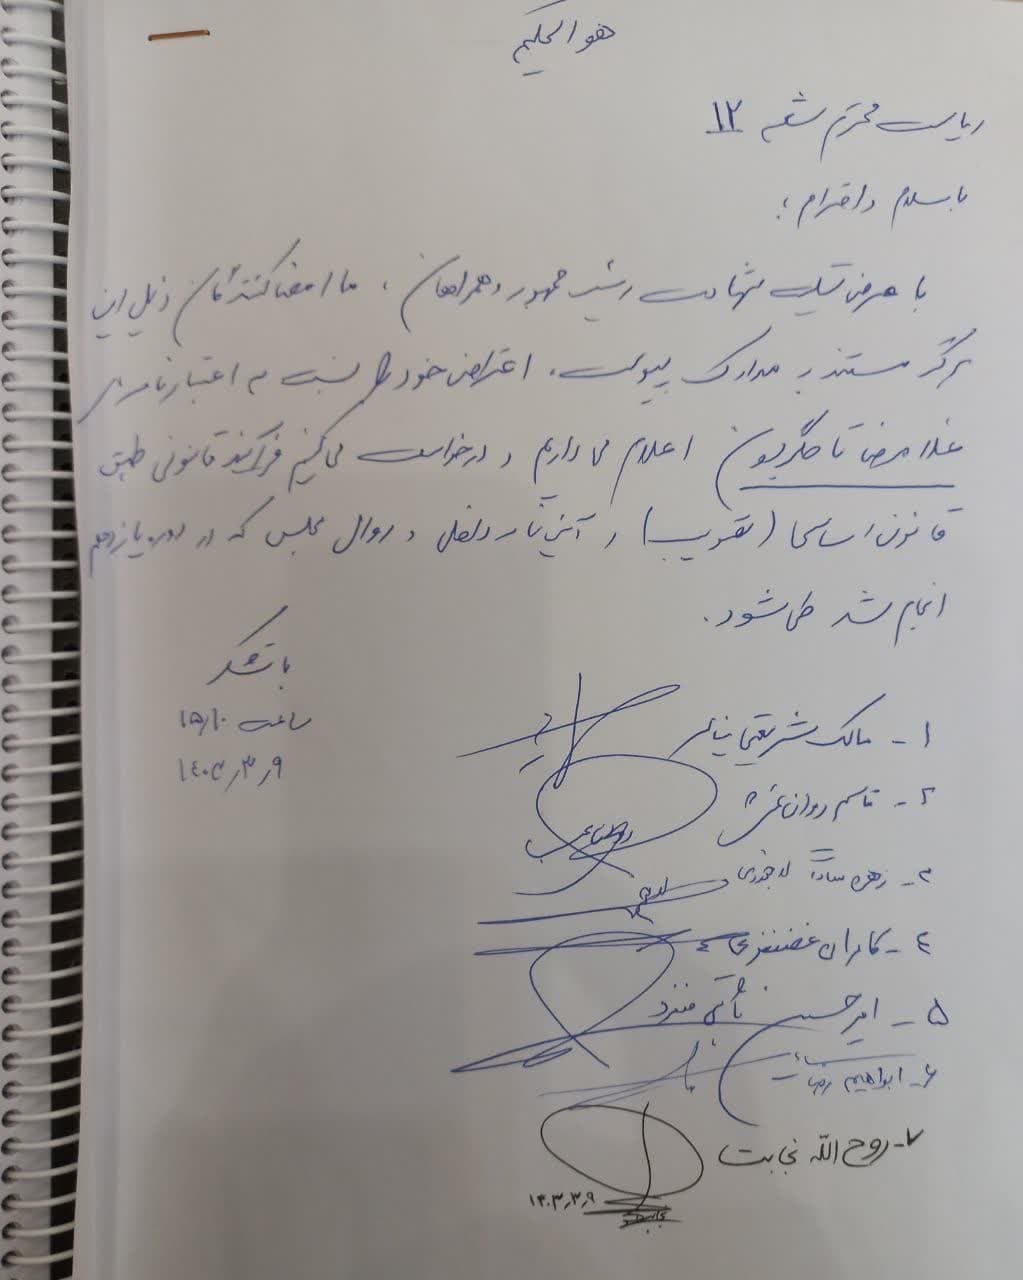 هو الحکیم
ریاست محترم شعبه ۱۲
با سلام و احترام؛
با عرض تسلیت شهادت رئیس جمهور و همراهان، ما امضا کنندگان ذیل این
برگه مستند به مدارک پیوست، اعتراض خود را نسبت به اعتبارنامه
غلامرضا تاجگردون اعلام می داریم و درخواست می کنیم فرآیند قانونی طبق
قانون اساسی ( ) و آئین نامه داخلی و روال مجلس که در دوره یازدهم
انجام شد طی شود.
با تشکر
ساعت ۱۵/۱۰
۱۴۰۳/۳/۹
۱- مالک شریعتی نیاسر
۲- قاسم روانبخش
۳- زهره سادات لاجوردی
٤- کامران غضنفری
۵- امیرحسین ثابتی منفرد
۶- ابراهیم رضائی
۷- روح الله نجابت
۱۴۰۳/۳/۹